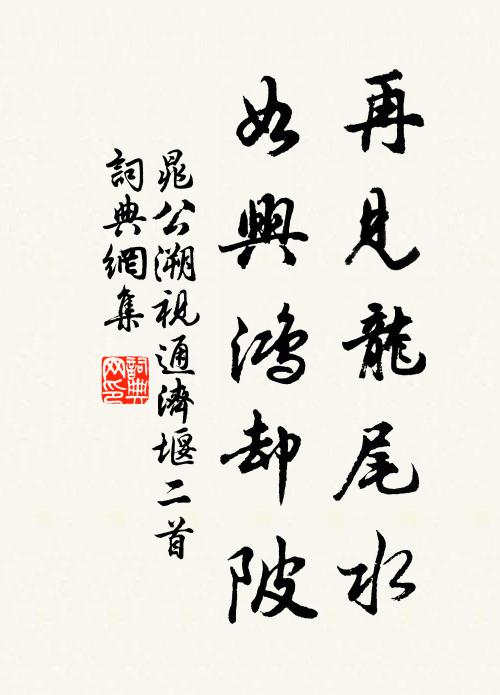 再見龍尾水
如興鴻却陂
晁公溯視通濟堰二首
詞典網集
詞典網印